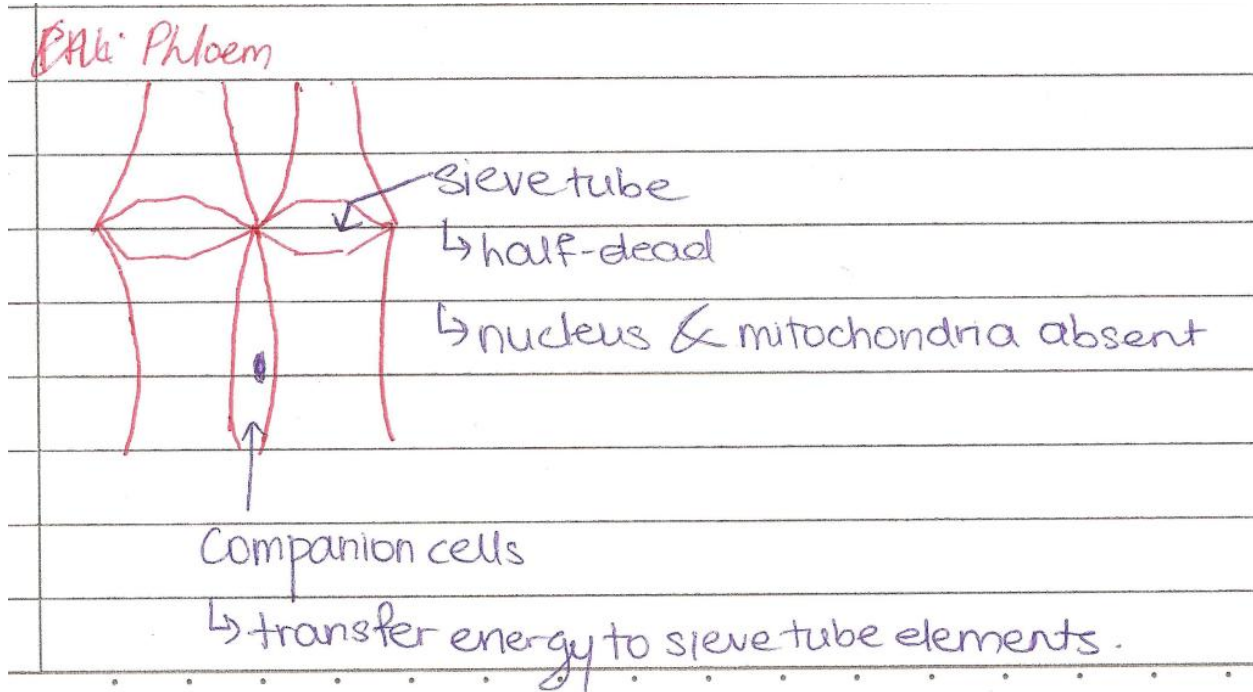 Phloem
sieve tube
↳ half-dead
↳ nucleus & mitochondria absent
Companion cells
↳ transfer energy to sieve tube elements.